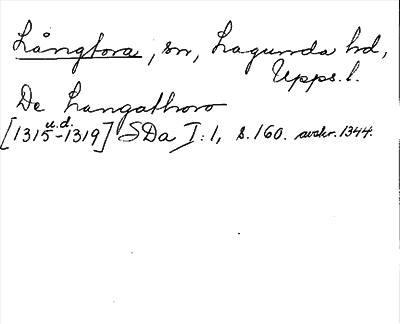 Långtora, sn, Lagunda hd,
Upps. l.
De Langathoro
[1315 u.d. -1319] SDa I:1, s. 160. avskr. 1344.